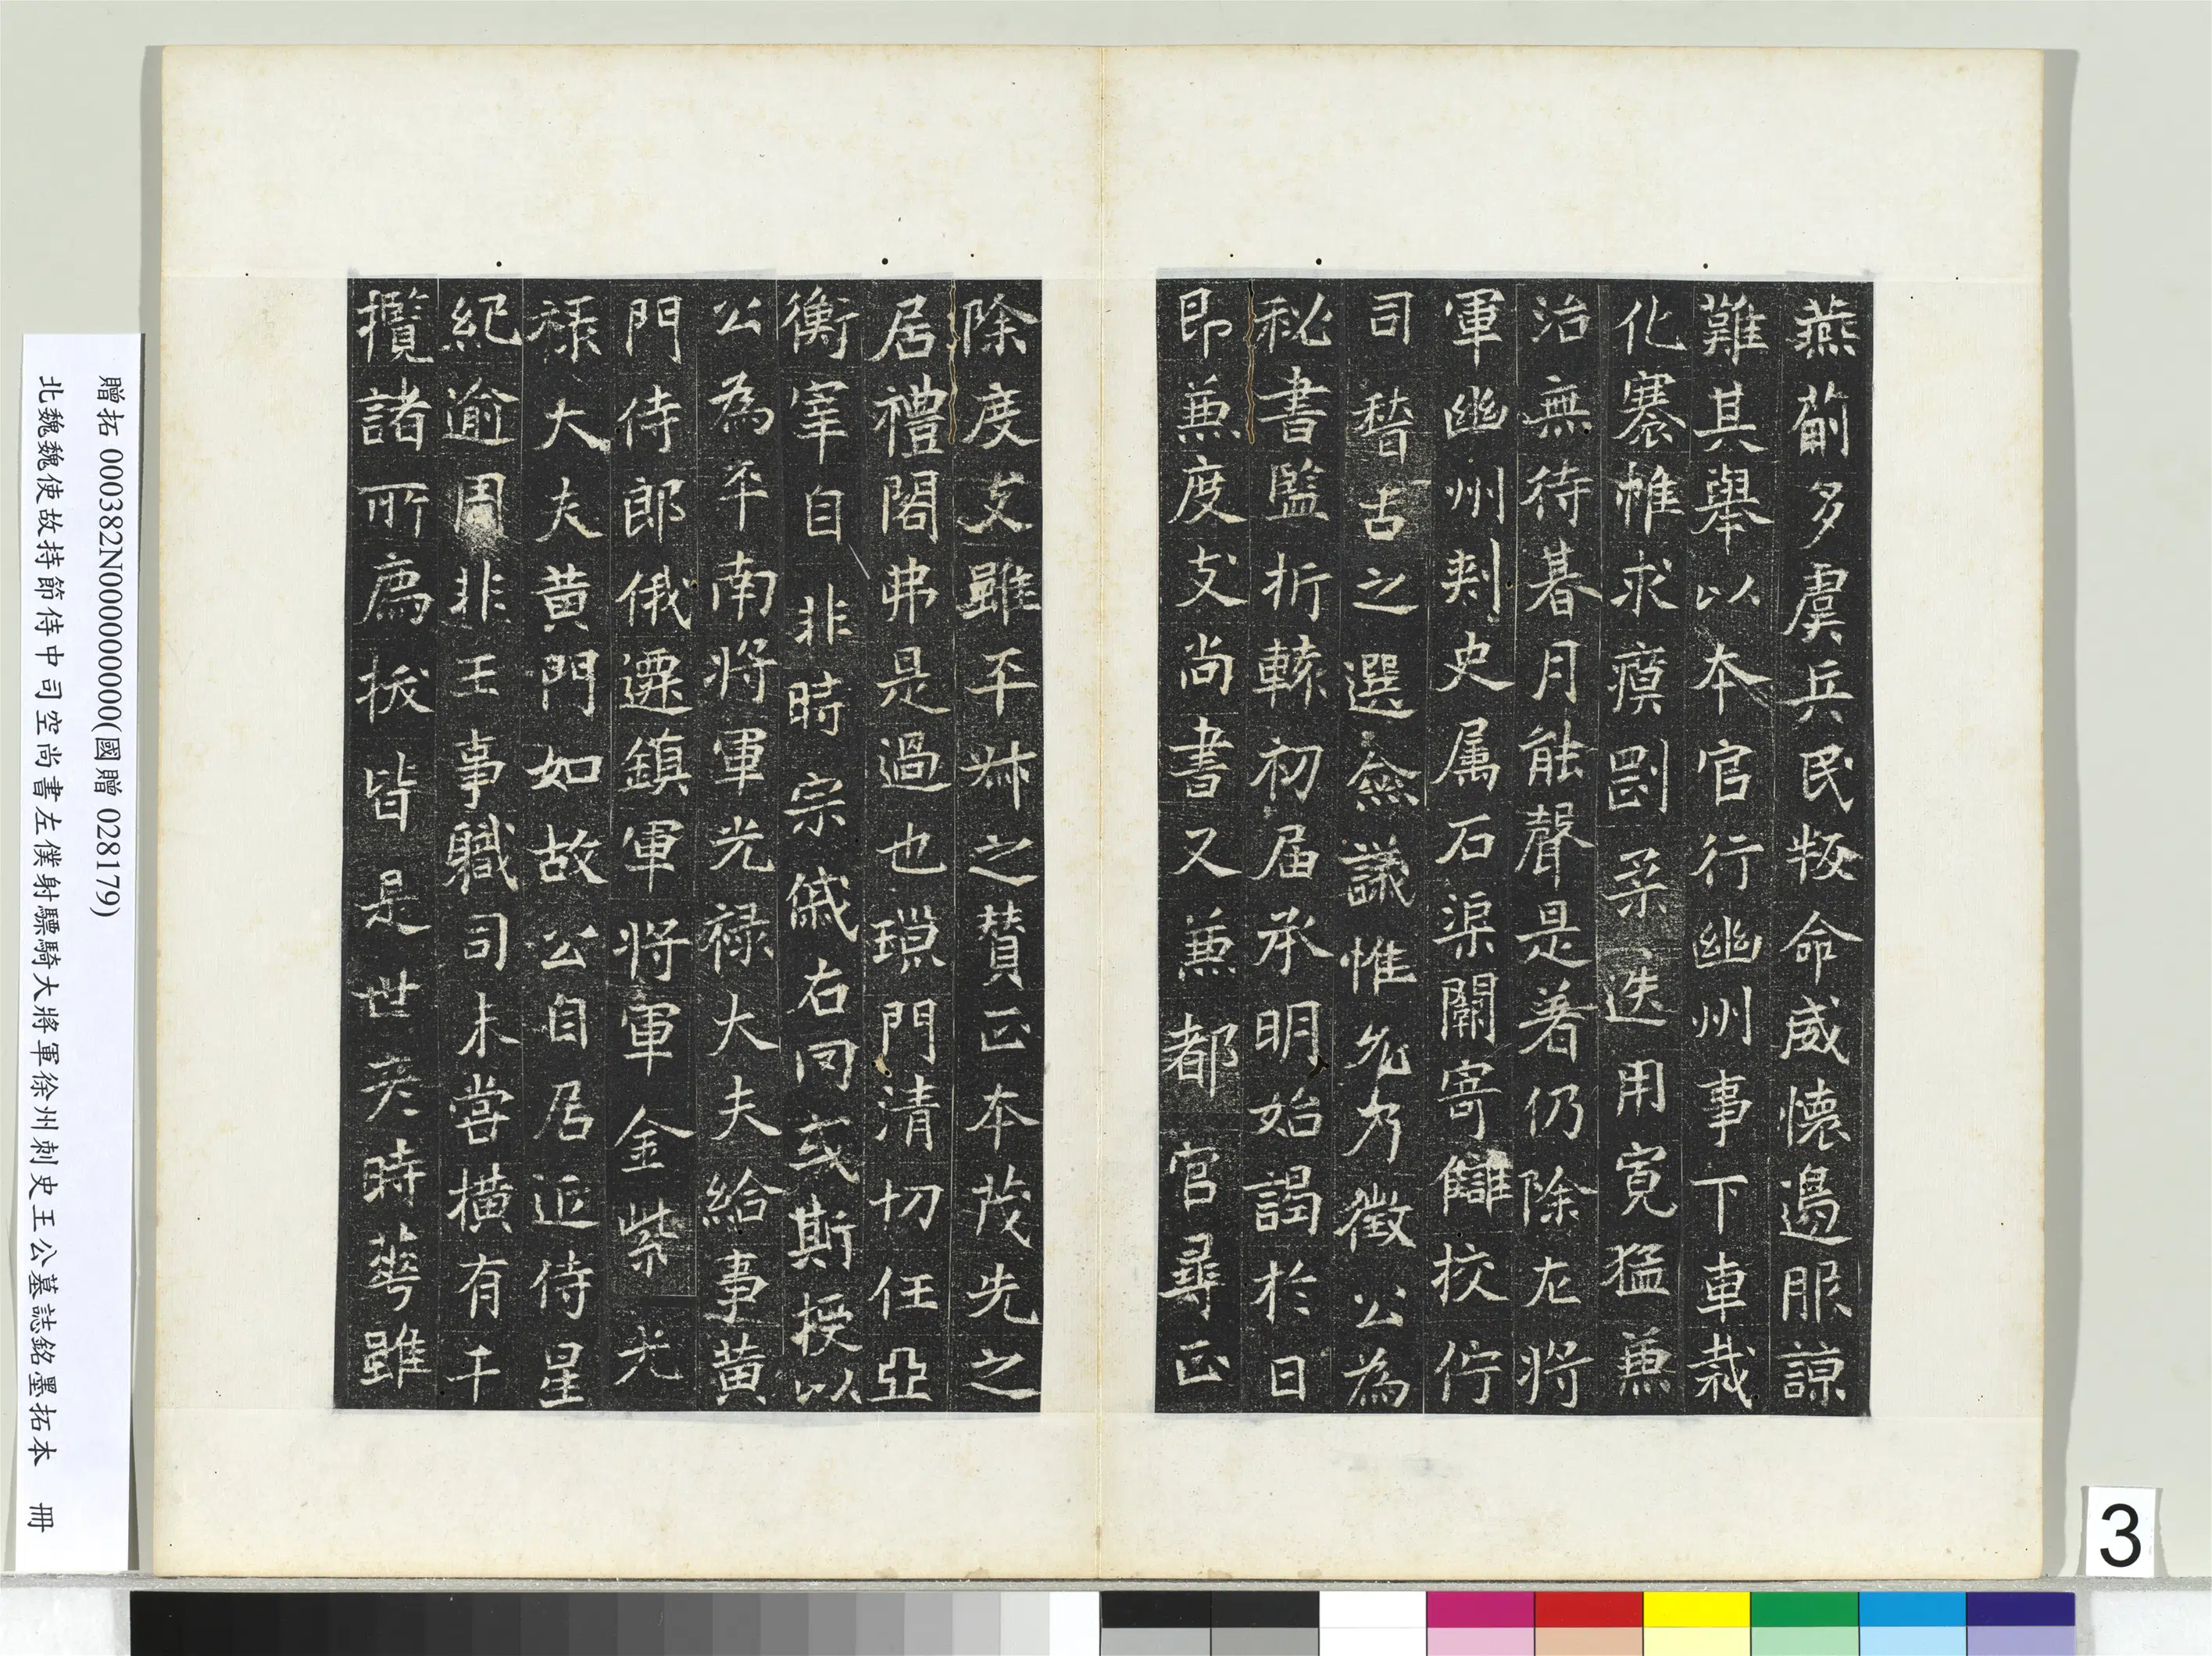 燕薊多虞兵民叛命威懷邊服諒
難其舉以本官行幽州事下車裁
化褰帷求瘼罰柔迭用寬猛兼
治無待朞月能聲是著仍除左將
軍幽州刾史属石渠闕寄讎挍佇
司稽古之選僉議惟允乃徵公為
秘書監折轅初届承明始謁於日
即兼度支尚書又兼都官尋正
除度支雖平叔之贊正本茂先之
居禮閤弗是過也瑣門清切任亞
衡宰自非時宗儁右罔或斯授以
公為平南將軍光禄大夫給事黄
門侍郎俄遷鎮軍將軍金紫光
禄大夫黄門如故公自居近侍星
紀逾周非王事職司未嘗橫有干
攬諸所薦拔皆是世彥時華雖
贈拓 000382N000000000(國贈 028179)
北魏魏使故持節侍中司空尚書左僕射驃騎大將軍徐州刺史王公墓誌銘墨拓本 冊
3